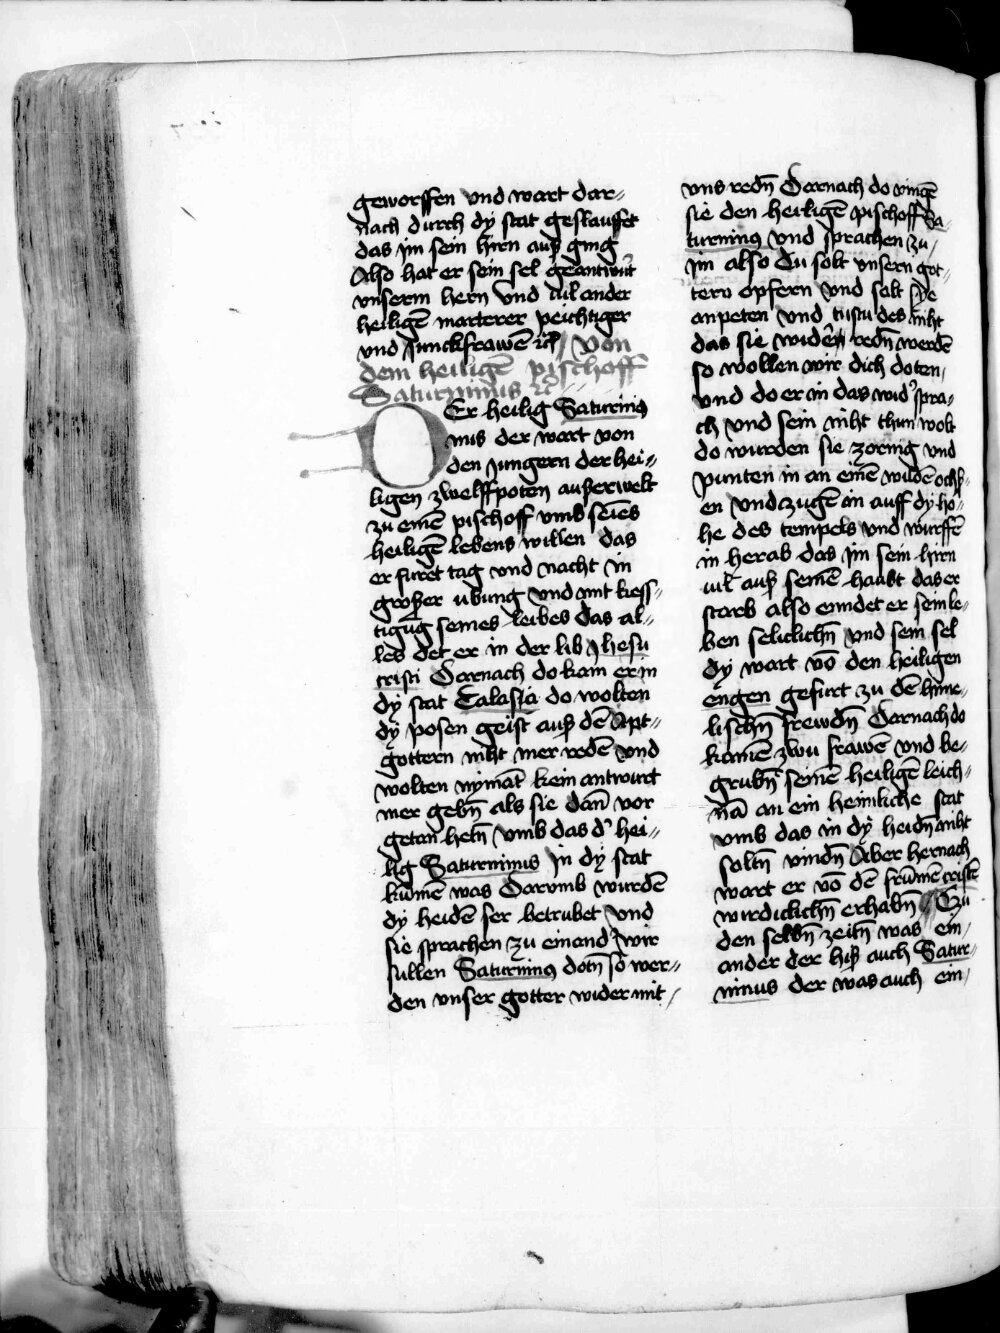 geworffen vnd wart dar=
nach durch dy stat geslauffet
das jm sein hirn auß ging
Also hat er sein sel geantwurt
vnserm hern vnd vil ander
heiligē marterer peichtiger
vnd Junckfrawē
Von
dem heiligē pischoff
Saturninus
Er heilig Saturni
nus der wart von
den jungern der hei=
ligen zwelffpoten außerwelt
zu einē pischoff vmb seines
heiligē lebens willen das
er furet tag vnd nacht in
großer ubung vnd mit kess=
tigūg seines leibes das al=
les det er in der lib jhesu
cristi Darnach do kam er in
dy stat Talasia do wolten
dy posen geist auß dē Apt=
gottern niht mer redē vnd
wolten nymāt kein antwurt
mer gebn̄ als sie dan̄ vor
getan hetn̄ vmb das d' hei=
lig Saturninus in dy stat
kumen was Darumb wurdē
dy heidē ser betrubet vnd
sie sprachen zu einand' wir
sullen Saturninus dotn̄ so wer=
den vnser gotter wider mit
vns redn̄ Darnach do vingē
sie den heiligē pischoff Sa=
turninus vnd sprachen zu
jm also du solt vnsern got=
tern opfern vnd solt sye
anpeten vnd tustu des niht
das sie wider redn̄ werdē
so wollen wir dich doten
vnd do er in das wid'spra=
ch vnd sein niht thun wolt
do wurden sie zornig vnd
punten in an einē wildē ochß=
en vnd zugē in auff dy ho=
he des tempels vnd wurffē
in herab das jm sein hirn
vil auß seinē haubt das er
starb also enndet er sein le=
ben seliclichn̄ vnd sein sel
dy wart vō den heiligen
engen gefurt zu dē hime=
lischn̄ frewdn̄ Darnach do
kamē zwu frawē vnd be=
grubn̄ seinē heiligē leich=
nā an ein heimliche stat
vmb das in dy heidn̄ niht
soltn̄ vindn̄ Aber hernach
wart er vō dē frumē cristē
wirdiclichn̄ erhabn̄ Zu
den selbn̄ zeitn̄ was ein
ander der hiß auch Satur=
ninus der was auch ein